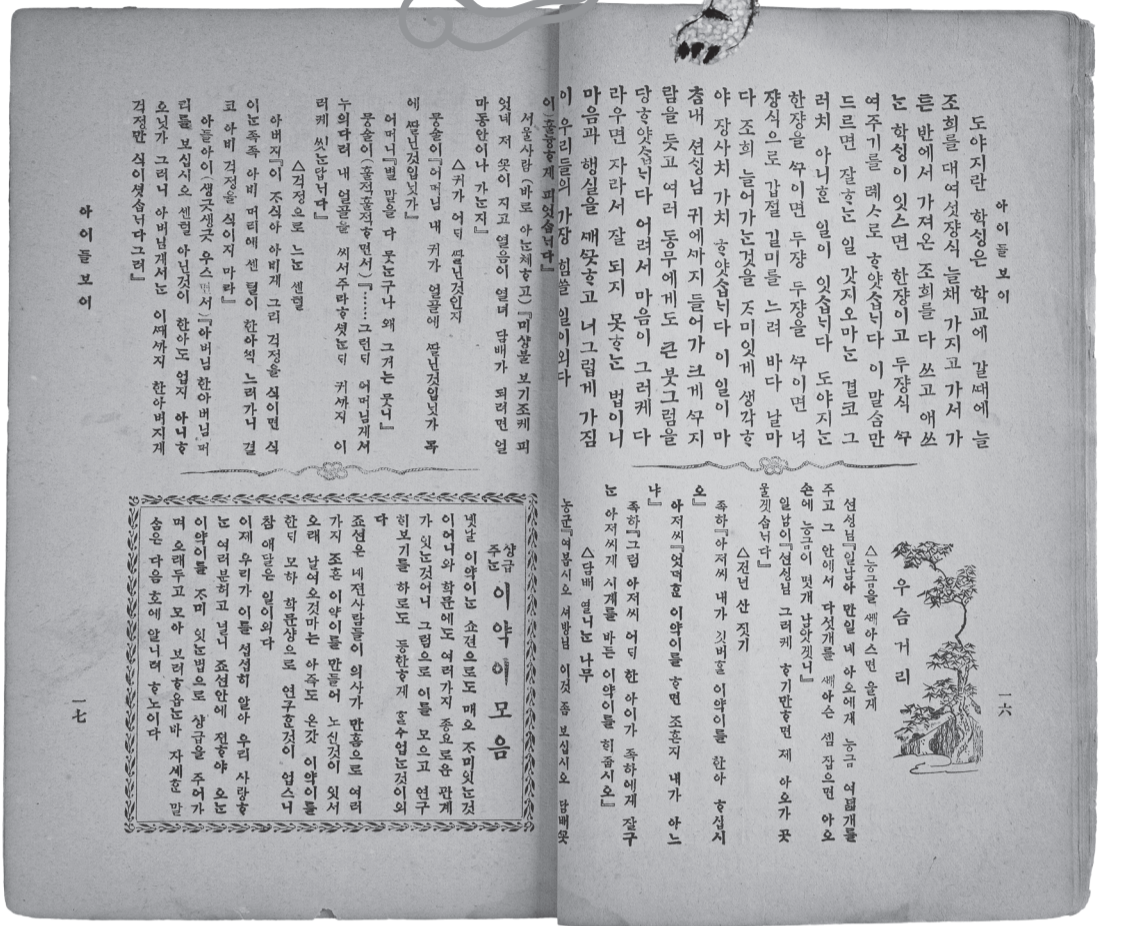 아이들보이
도야지란 학ᄉᆡᆼ은 학교에 갈ᄯᅢ에 늘
조희를 대여섯쟝식 늘채 가지고 가서 가
튼 반에서 가져온 조희를 다 쓰고 애쓰
는 학ᄉᆡᆼ이 잇스면 한쟝이고 두쟝식 ᄭᅮ
여주기를 례ᄉᆞ로 ᄒᆞ얏습니다 이 말슴만
드르면 잘ᄒᆞ는 일 갓지오마는 결코 그
러치 아니ᄒᆞᆫ 일이 잇습니다 도야지는
한쟝을 ᄭᅮ이면 두쟝 두쟝을 ᄭᅮ이면 넉
쟝식으로 갑절 길미를 느려 바다 날마
다 조희 늘어가는것을 ᄌᆞ미잇게 생각ᄒᆞ
야 쟝사치 가치 ᄒᆞ얏습니다 이 일이 마
츰내 션ᄉᆡᆼ님 귀에ᄭᅡ지 들어가 크게 ᄭᅮ지
람을 듯고 여러 동무에게도 큰 붓그럼을
당ᄒᆞ얏습니다 어려서 마음이 그러케 다
라우면 자라서 잘 되지 못ᄒᆞ는 법이니
마음과 행실을 ᄭᅢᄭᅳᆺᄒᆞ고 너그럽게 가짐
이 우리들의 가장 힘쓸 일이외다
우슴거리
△능금을 ᄲᅢ아스면 울게
션ᄉᆡᆼ님『일남아 만일 네 아오에게 능금 여ᄃᆞᆲ개를
주고 그 안에서 다섯개를 ᄲᅢ아슨 셈 잡으면 아오
손에 능금이 몃개 남앗겟니』
일남이『션ᄉᆡᆼ님 그러케 ᄒᆞ기만ᄒᆞ면 제 아오가 곳
울겟습니다』
△전년 산 짓기
족하『아저씨 내가 깃버ᄒᆞᆯ 이약이를 한아 ᄒᆞ십시
오』
아저씨『엇더ᄒᆞᆫ 이약이를 ᄒᆞ면 조흔지 내가 아느
냐』
족하『그럼 아저씨 어ᄃᆡ 한 아이가 족하에게 잘구
는 아저씨게 시계를 바든 이약이를 히줍시오』
△담배 열니는 나무
농군『여봅시오 셔방님 이것 좀 보십시오 담배ᄭᅩᆺ
一六
이 훌능ᄒᆞ게 피엿습니다』
서울사람 (바로 아는체ᄒᆞ고)『미샹불 보기조케 피
엇네 저 ᄭᅩᆺ이 지고 열음이 열녀 담배가 되려면 얼
마동안이나 가는지』
△귀가 어ᄃᆡ ᄯᅡᆯ닌것인지
뭉술이『어머님 내 귀가 얼골에 ᄯᅡᆯ닌것입닛가 목
에 ᄯᅡᆯ닌것입닛가』
어머니『별 말을 다 뭇는구나 왜 그거는 뭇니』
뭉술이(훌적훌적ᄒᆞ면서)『……그런ᄃᆡ 어머님게서
누의다려 내 얼골을 씨서주라ᄒᆞ셧는ᄃᆡ 귀ᄭᅡ지 이
러케 씻는답니다』
△걱정으로 느는 센털
아버지『이 ᄌᆞ식아 아비게 그리 걱정을 식이면 식
이는족족 아비 머리에 센 털이 한아식 느러가니 결
코 아비 걱정을 식이지 마라』
아들아이(생긋생긋 우스면서)『아버님 한아버님머
리를 보십시오 센털 아닌것이 한아도 업지 아니ᄒᆞ
오닛가 그러니 아버님게서는 이ᄯᅢᄭᅡ지 한아버지게
걱정만 식이셧습니다그려』
샹급주는 이약이모음
녯날 이약이는 쇼견으로도 매오 ᄌᆞ미잇는것
이어니와 학문에도 여러가지 종요로운 관계
가 잇는것이니 그럼으로 이를 모으고 연구
히보기를 하로도 등한ᄒᆞ게 ᄒᆞᆯ수업는것이외
다
죠션은 녜전사람들이 의사가 만흠으로 여러
가지 조흔 이약이를 만들어 노신것이 잇서
오래 날여오것마는 아즉도 온갓 이약이를
한ᄃᆡ 모하 학문샹으로 연구ᄒᆞᆫ것이 업스니
참 애달은 일이외다
이제 우리가 이를 섭섭히 알아 우리 사랑ᄒᆞ
는 여러분히고 널니 죠션안에 전ᄒᆞ야 오는
이약이를 ᄌᆞ미 잇는법으로 샹급을 주어가
며 으래두고 모아 보려ᄒᆞ옵는바 자세ᄒᆞᆫ 말
슴은 다음 호에 알니려 ᄒᆞ노이다
아이들보이
一七